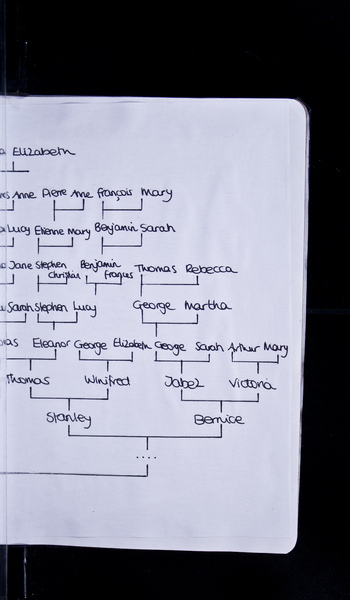 Elizabeth
Anne Pierre Anne François Mary
Lucy Etienne Mary Benjamin Sarah
Jane Stephen Benjamin Thomas Rebecca
Christian Frances
Sarah Stephen Lucy George Martha
Eleanor George Elizabeth George Sarah Arthur Mary
Thomas Winifred Jabez Victoria
Stanley Bernice
....